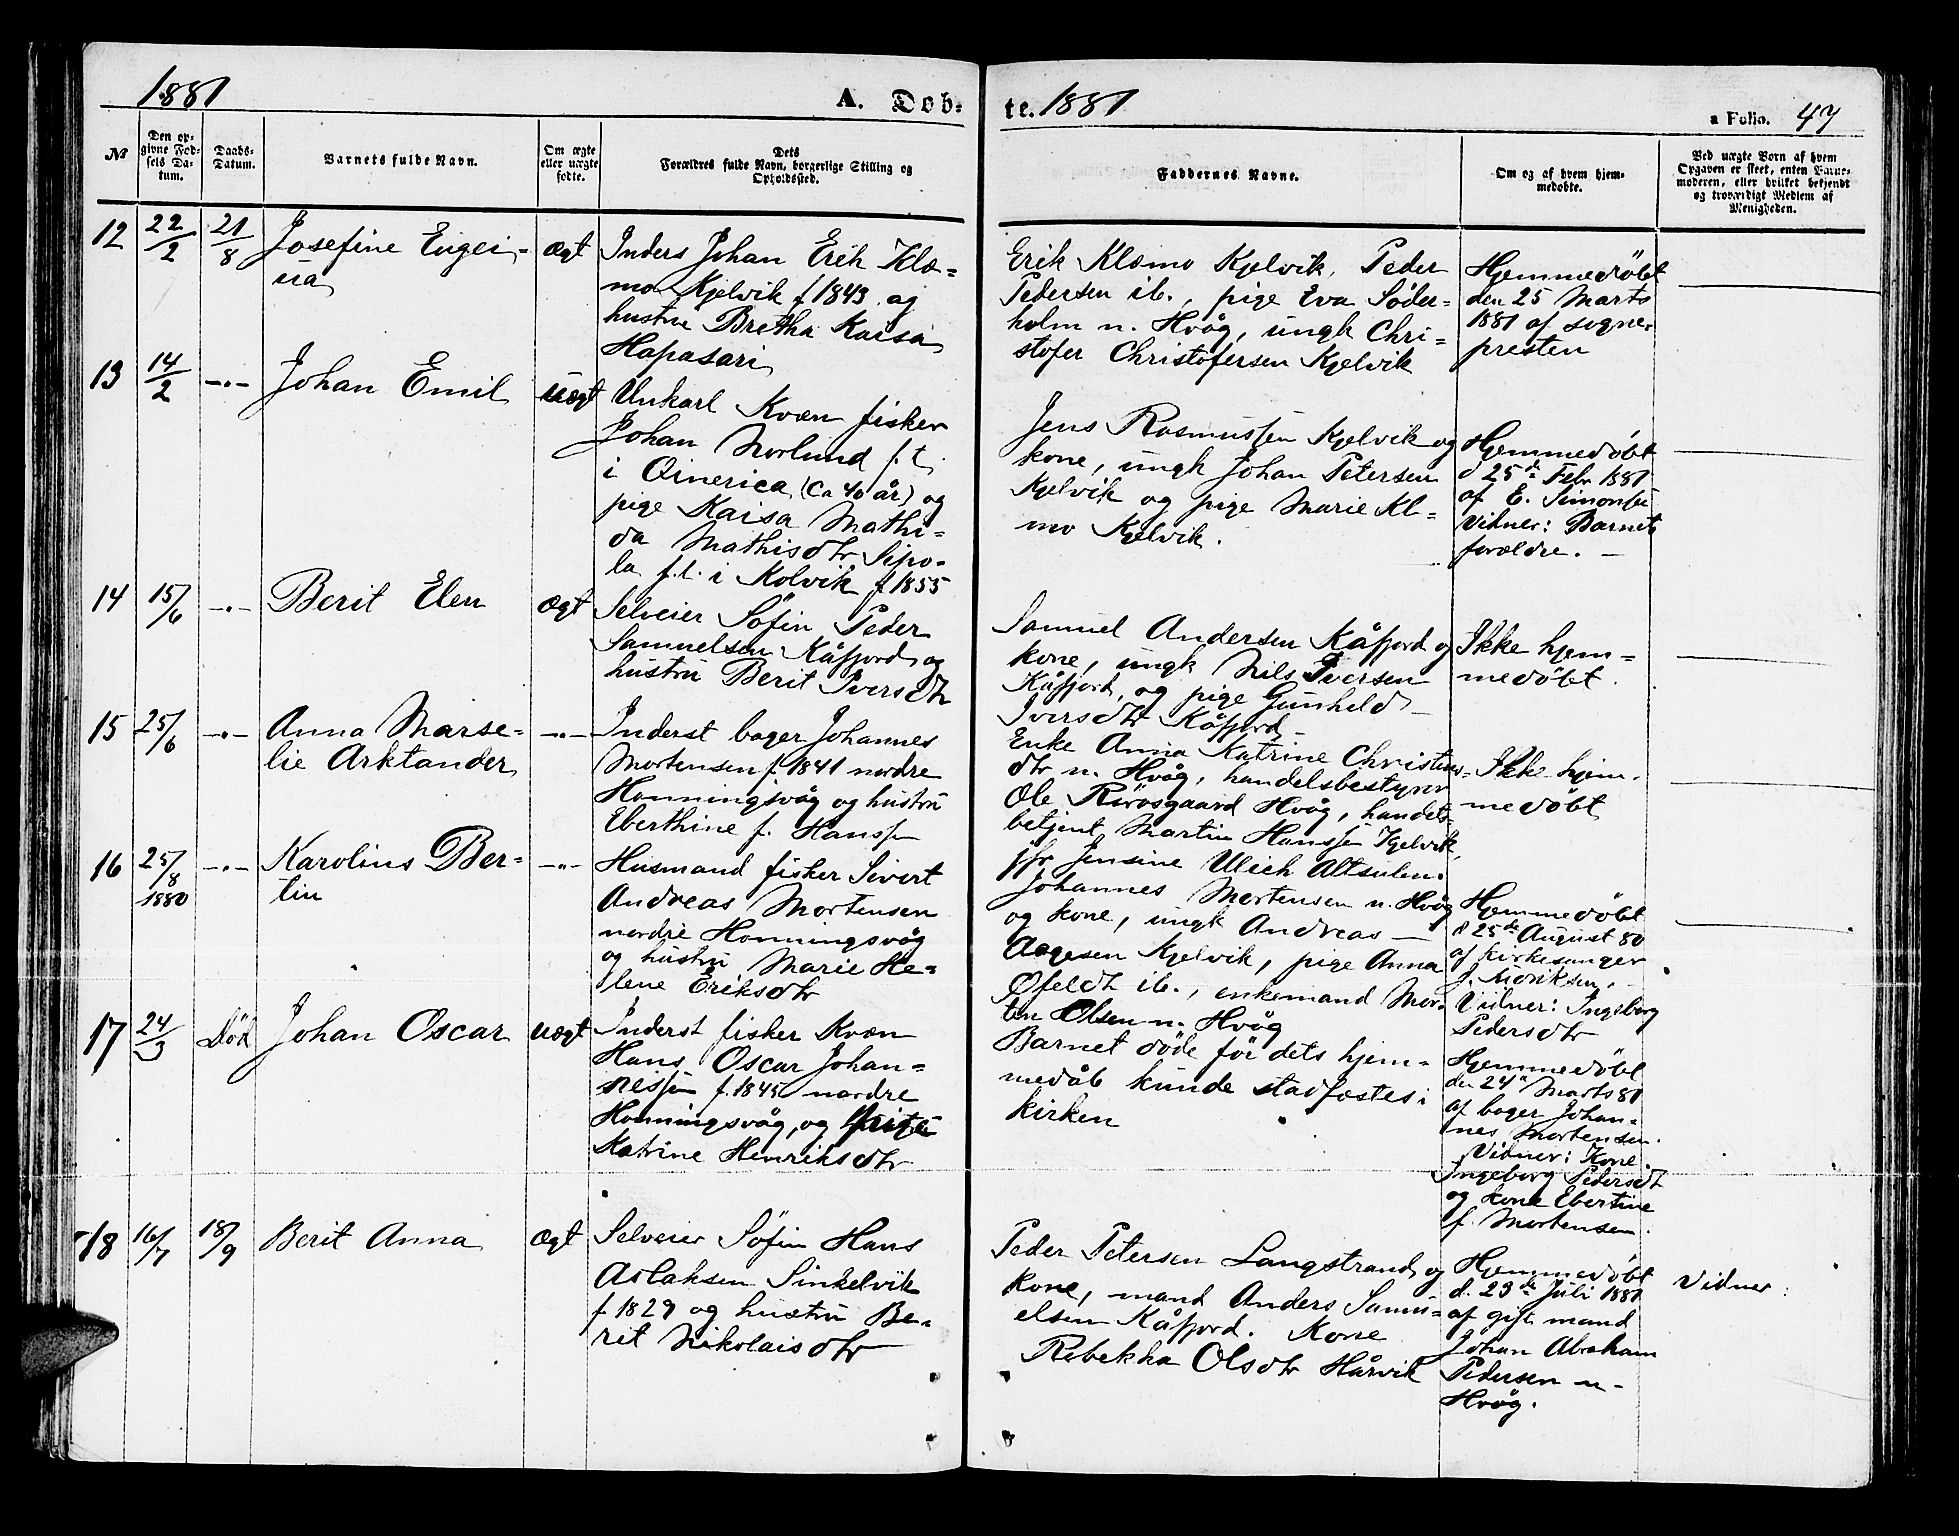 1881
A. Døb-
te. 1881
a Folio. 47
No
Den op-
givne Fød-
sels Da-
tum.
Daabs-
Datum.
Varnets fulde Navn.
Om ægte
eller uægte
fødte.
Dets
Forældres fulde Navn, borgerlige Stilling og
Opholdssted.
Faddernes Navne.
Om og af hvem hjem-
medøbte.
Ved uægte Børn af hvem
Opgaven er skeet, enten Barne-
moderen, eller hvilket bekjendt
og troværdigt Medlem af
Menigheden.
12
22/2
21/8
Josefine Eugei-
na
ægt
Inders Johan Erik Klæ-
mo Kjelvik f 1843 og
hustru Bretha Kaisa
Hapasari
Erik Klæmo Kjelvik, Peder
Pedersen ib., pige Eva Søder-
holm n. Hvåg, ungk Chri-
stofer Christofersen Kjelvik
Hjemmedöbt
den 25 Marts
1881 af sogne-
presten
13
14/2
-"-
Johan Emil
uægt
Unkarl Kvæn fisker
Johan Norlund f. t.
i America (ca 40 år) og
pige Kaisa Mathi-
da Mathisdtr Sipo-
la f. t. i Kolvik f 1855
Jens Rasmussen Kjelvik og
kone, ungk Johan Petersen
Kjelvik og pige Marie Kl-
mo Kjelvik.
Hjemmedöbt
d 25de Febr 1881
af E. Simonsen
Vidner: Barnets
forældre. -
14
15/6
-"-
Berit Elen
ægt
Selveier Söfin Peder
Samuelsen Kåfjord og
hustru Berit Iversdtr
Samuel Andersen Kåfjord og
kone, ungk Nils Iversen
Kåfjord, og pige Gunhild
Iversdtr Kåfjord
Ikke hjem-
medöbt.
15
25/6
-"-
Anna Marse-
lie Arktander
-"-
Inderst bager Johannes
Mortensen f. 1841 nordre
Honningsvåg og hustru
Eberthine f. Hanssen
Enke Anna Katrine Christens-
dtr n. Hvåg, handelsbestyrer
Ole Rörosgaard Hvåg, handels-
betjent Martin Hanssen Kjelvik,
jfr Jensine Ulich Altsulen.
Ikke hjem-
medöbt
16
25/8
1880
-"-
Karolius Ber-
tin
-"-
Husmand fisker Sivert
Andreas Mortensen
nordre Honningsvåg
og hustru Marie He-
lene Eriksdtr
Johannes Mortensen n. Hvåg
og kone, ungk Andreas
Aagesen Kjelvik, pige Anna
Øfeldt ib., enkemand Mor-
ten Olsen n. Hvåg
Hjemmedöbt
d 25de August 80
af kirkesanger
J. Kidriksen,
Vidner: Ingeborg
Pedersdtr
17
24/3
Död
Johan Oscar
uægt
Inderst fisker Kvæn
Hans Oscar Johan-
nessen f. 1845 nordre
Honningsvåg, og
Katrine Henriksdtr
Barnet döde för dets hjem-
medåb kunde stadfæstes i
kirken
Hjemmedöbt
den 24de Marts 81
af bager Johan-
nes Mortensen.
Vidner: Kone
Ingeborg Pedersdt
og kone Ebertine
f. Mortensen.
18
16/7
18/9
Berit Anna
ægt
Selveier Söfin Hans
Aslaksen Sinkelvik
f 1829 og hustru Be-
rit Nikolaisdtr
Peder Petersen Langstrand og
kone, mand Anders Samu-
elsen Kåfjord. Kone
Rebekka Olsdtr Hårvik
Hjemmedöbt
d. 23de Juli 1881
af gift mand
Johan Abraham
Pedersen n.
Hvåg.
Vidner: